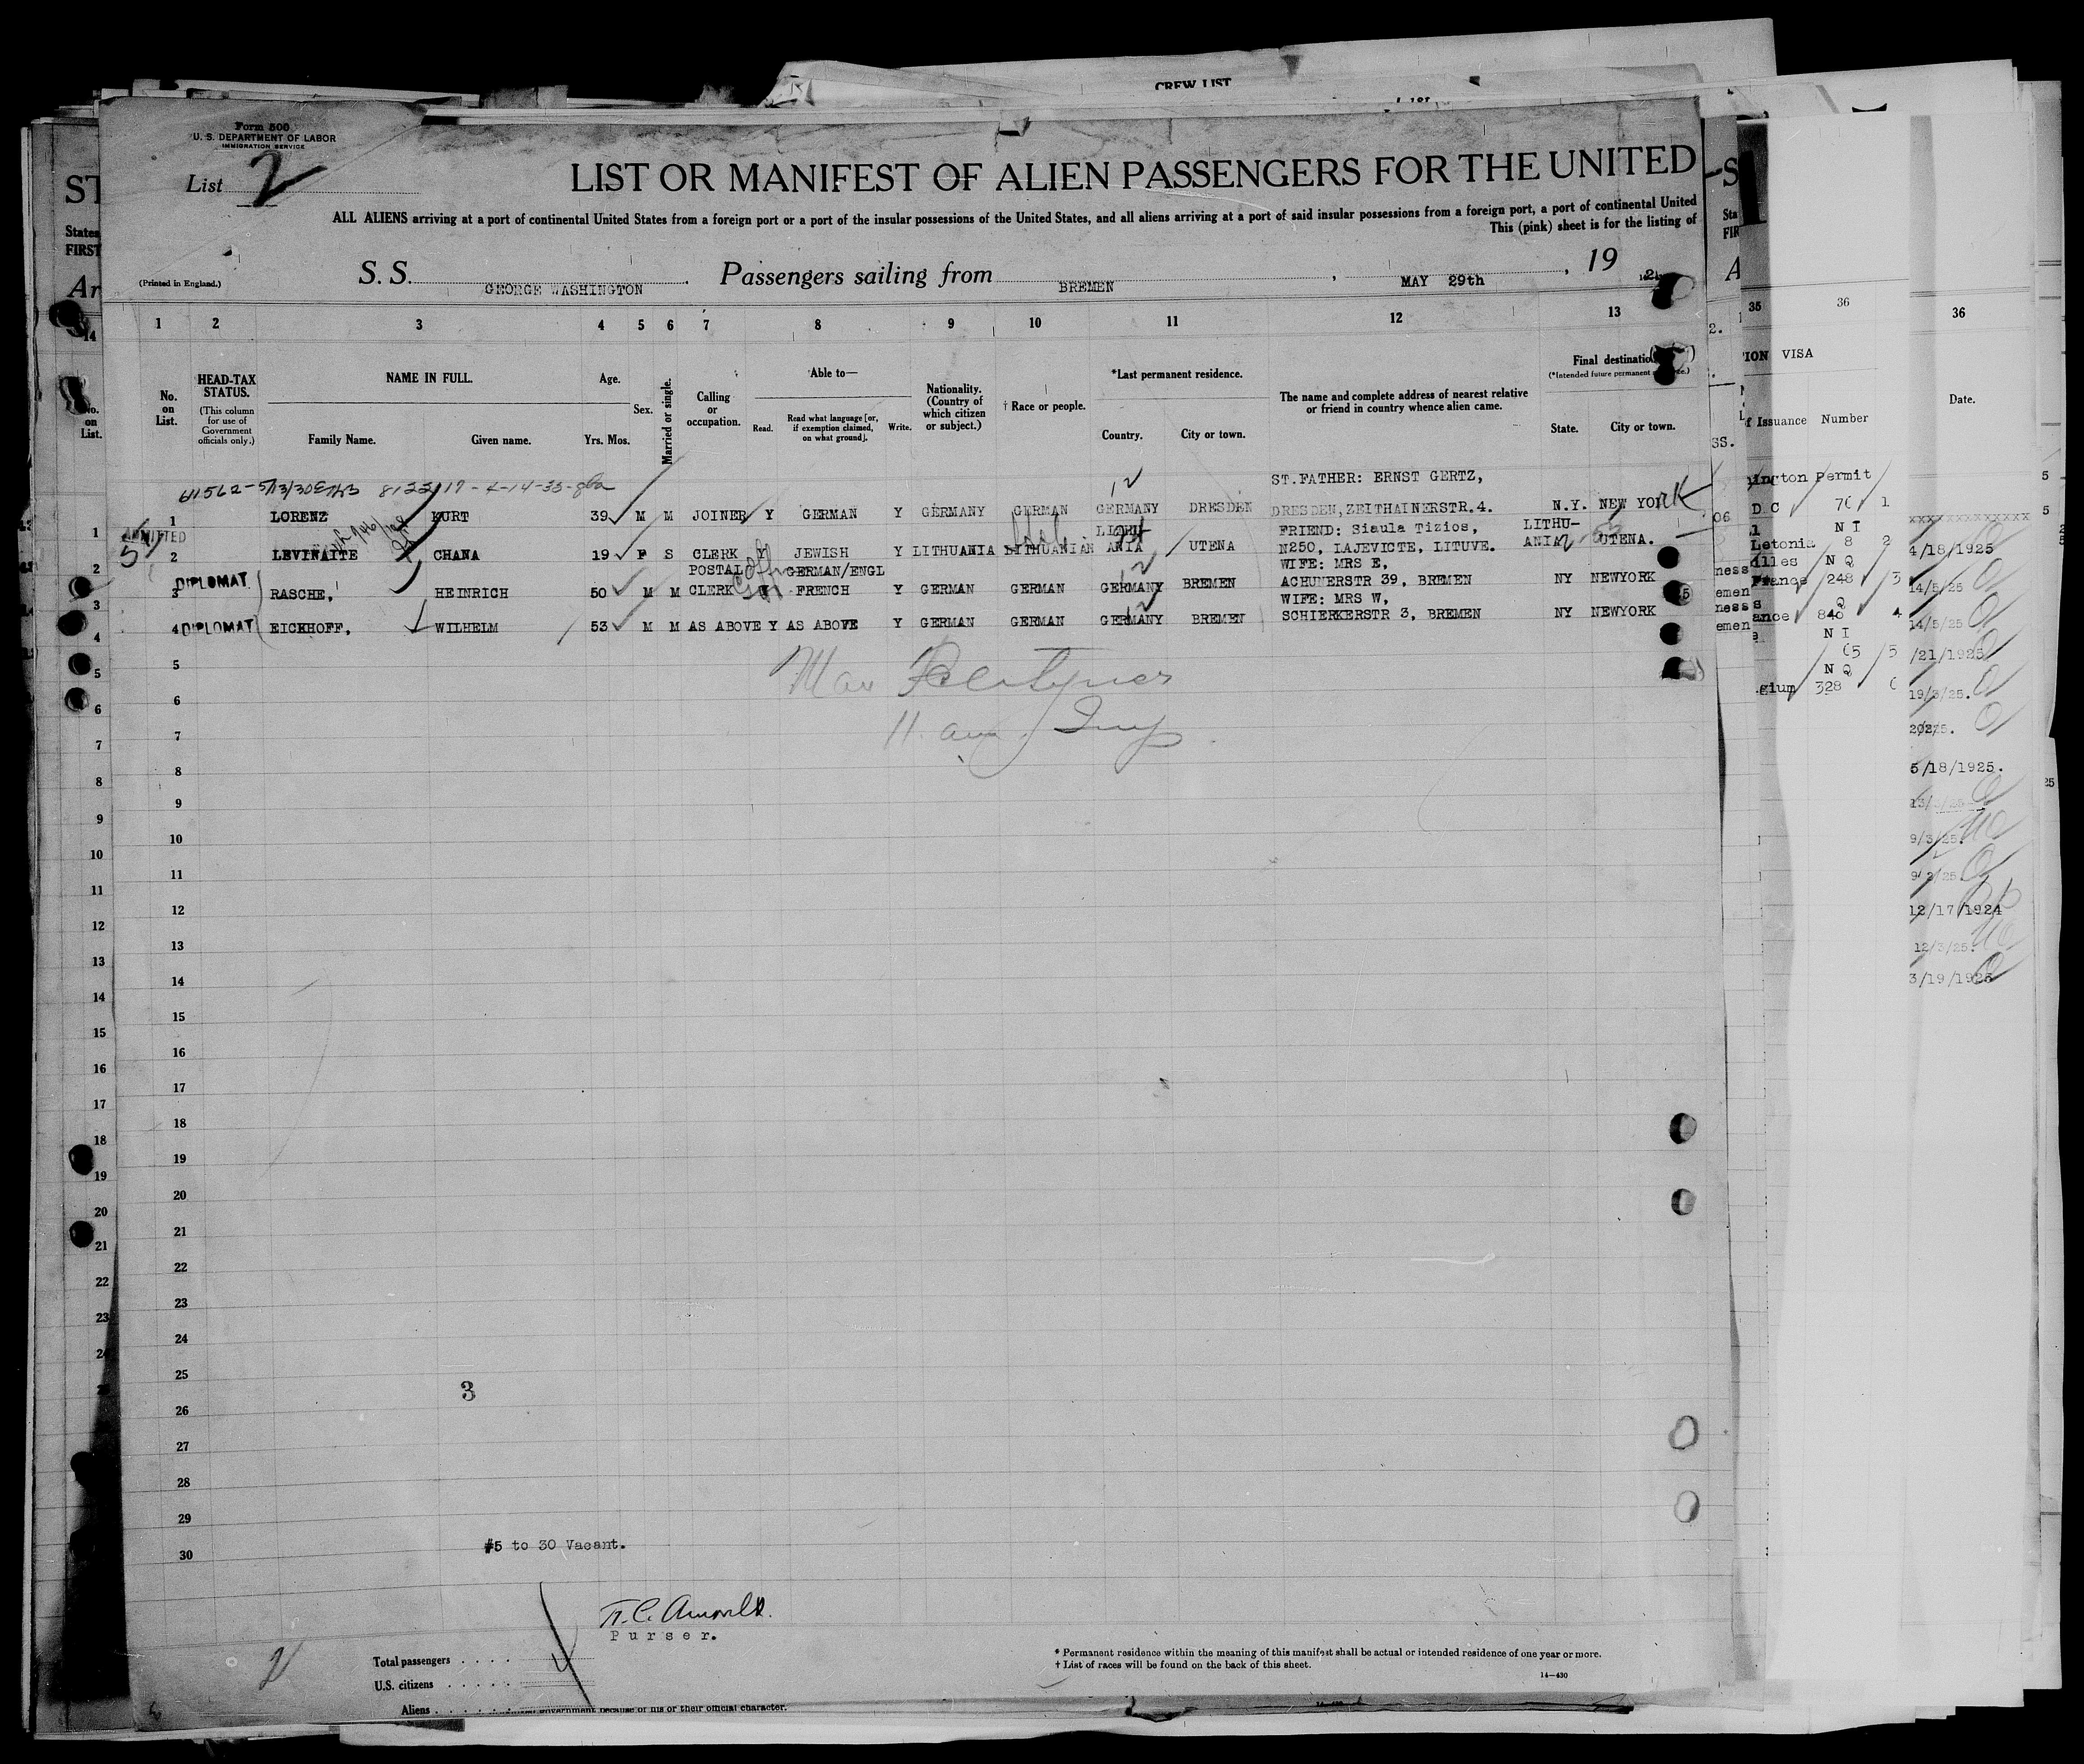 CREW LIST
Form 500
U. S. DEPARTMENT OF LABOR
IMMIGRATION SERVICE
List 2
LIST OR MANIFEST OF ALIEN PASSENGERS FOR THE UNITED
ALL ALIENS arriving at a port of continental United States from a foreign port or a port of the insular possessions of the United States, and all aliens arriving at a port of said insular possessions from a foreign port, a port of continental United
This (pink) sheet is for the listing of
(Printed in England.)
S. S. GEORGE WASHINGTON. Passengers sailing from BREMEN, MAY 29th, 19
1 2 3 4 5 6 7 8 9 10 11 12 13
No. on List.
HEAD-TAX STATUS.
(This column for use of Government officials only.)
NAME IN FULL.
Family Name. Given name.
Age.
Yrs. Mos.
Sex.
Married or single.
Calling or occupation.
Able to—
Read. Read what language [or, if exemption claimed, on what ground]. Write.
Nationality. (Country of which citizen or subject.)
† Race or people.
*Last permanent residence.
Country. City or town.
The name and complete address of nearest relative or friend in country whence alien came.
Final destination
(*Intended future permanent
State. City or town.
ST.FATHER: ERNST GERTZ,
1 LORENZ KURT 39 M M JOINER Y GERMAN Y GERMANY GERMAN GERMANY DRESDEN DRESDEN,ZEITHAINERSTR.4. N.Y. NEW YORK
ADMITTED
LITHU- FRIEND: Siaula Tizios, LITHU-
2 LEVINAITE CHANA 19 F S CLERK Y JEWISH Y LITHUANIA LITHUANIAN ANIA UTENA N250, LAJEVICTE, LITUVE. ANIA UTENA.
POSTAL GERMAN/ENGL WIFE: MRS E,
DIPLOMAT 3 RASCHE, HEINRICH 50 M M CLERK Y FRENCH Y GERMAN GERMAN GERMANY BREMEN ACHUMERSTR 39, BREMEN NY NEWYORK
WIFE: MRS W,
4 DIPLOMAT EICKHOFF, WILHELM 53 M M AS ABOVE Y AS ABOVE Y GERMAN GERMAN GERMANY BREMEN SCHIERKERSTR 3, BREMEN NY NEWYORK
5
6
7
8
9
10
11
12
13
14
15
16
17
18
19
20
21
22
23
24
25
3
26
27
28
29
30
#5 to 30 Vacant.
Purser.
Total passengers
U.S. citizens
Aliens
* Permanent residence within the meaning of this manifest shall be actual or intended residence of one year or more.
† List of races will be found on the back of this sheet.
14—430
government because of his or their official character.
35 36 36
VISA
Issuance Number Date.
Permit
D C
N I
Letonia 8 2
N Q
France 248 3
Q
848 4
N I
5
N Q
328
4/18/1925
14/5/25
14/5/25
/21/1925
19/3/25.
5/18/1925.
9/3/25.
12/17/1924
12/3/25.
3/19/1925